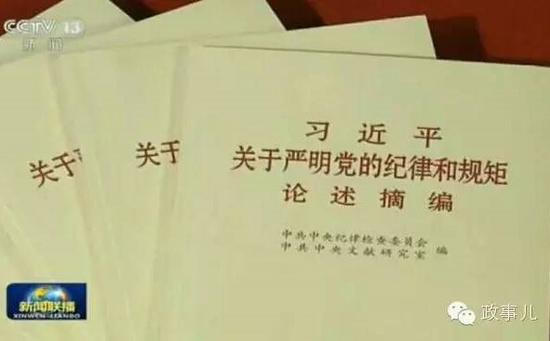 CCTV 13
新闻
习近平
关于严明党的纪律和规矩
论述摘编
中共中央纪律检查委员会
中共中央文献研究室 编
关于
关于严
新闻联播
XINWEN-LIANBO
政事儿